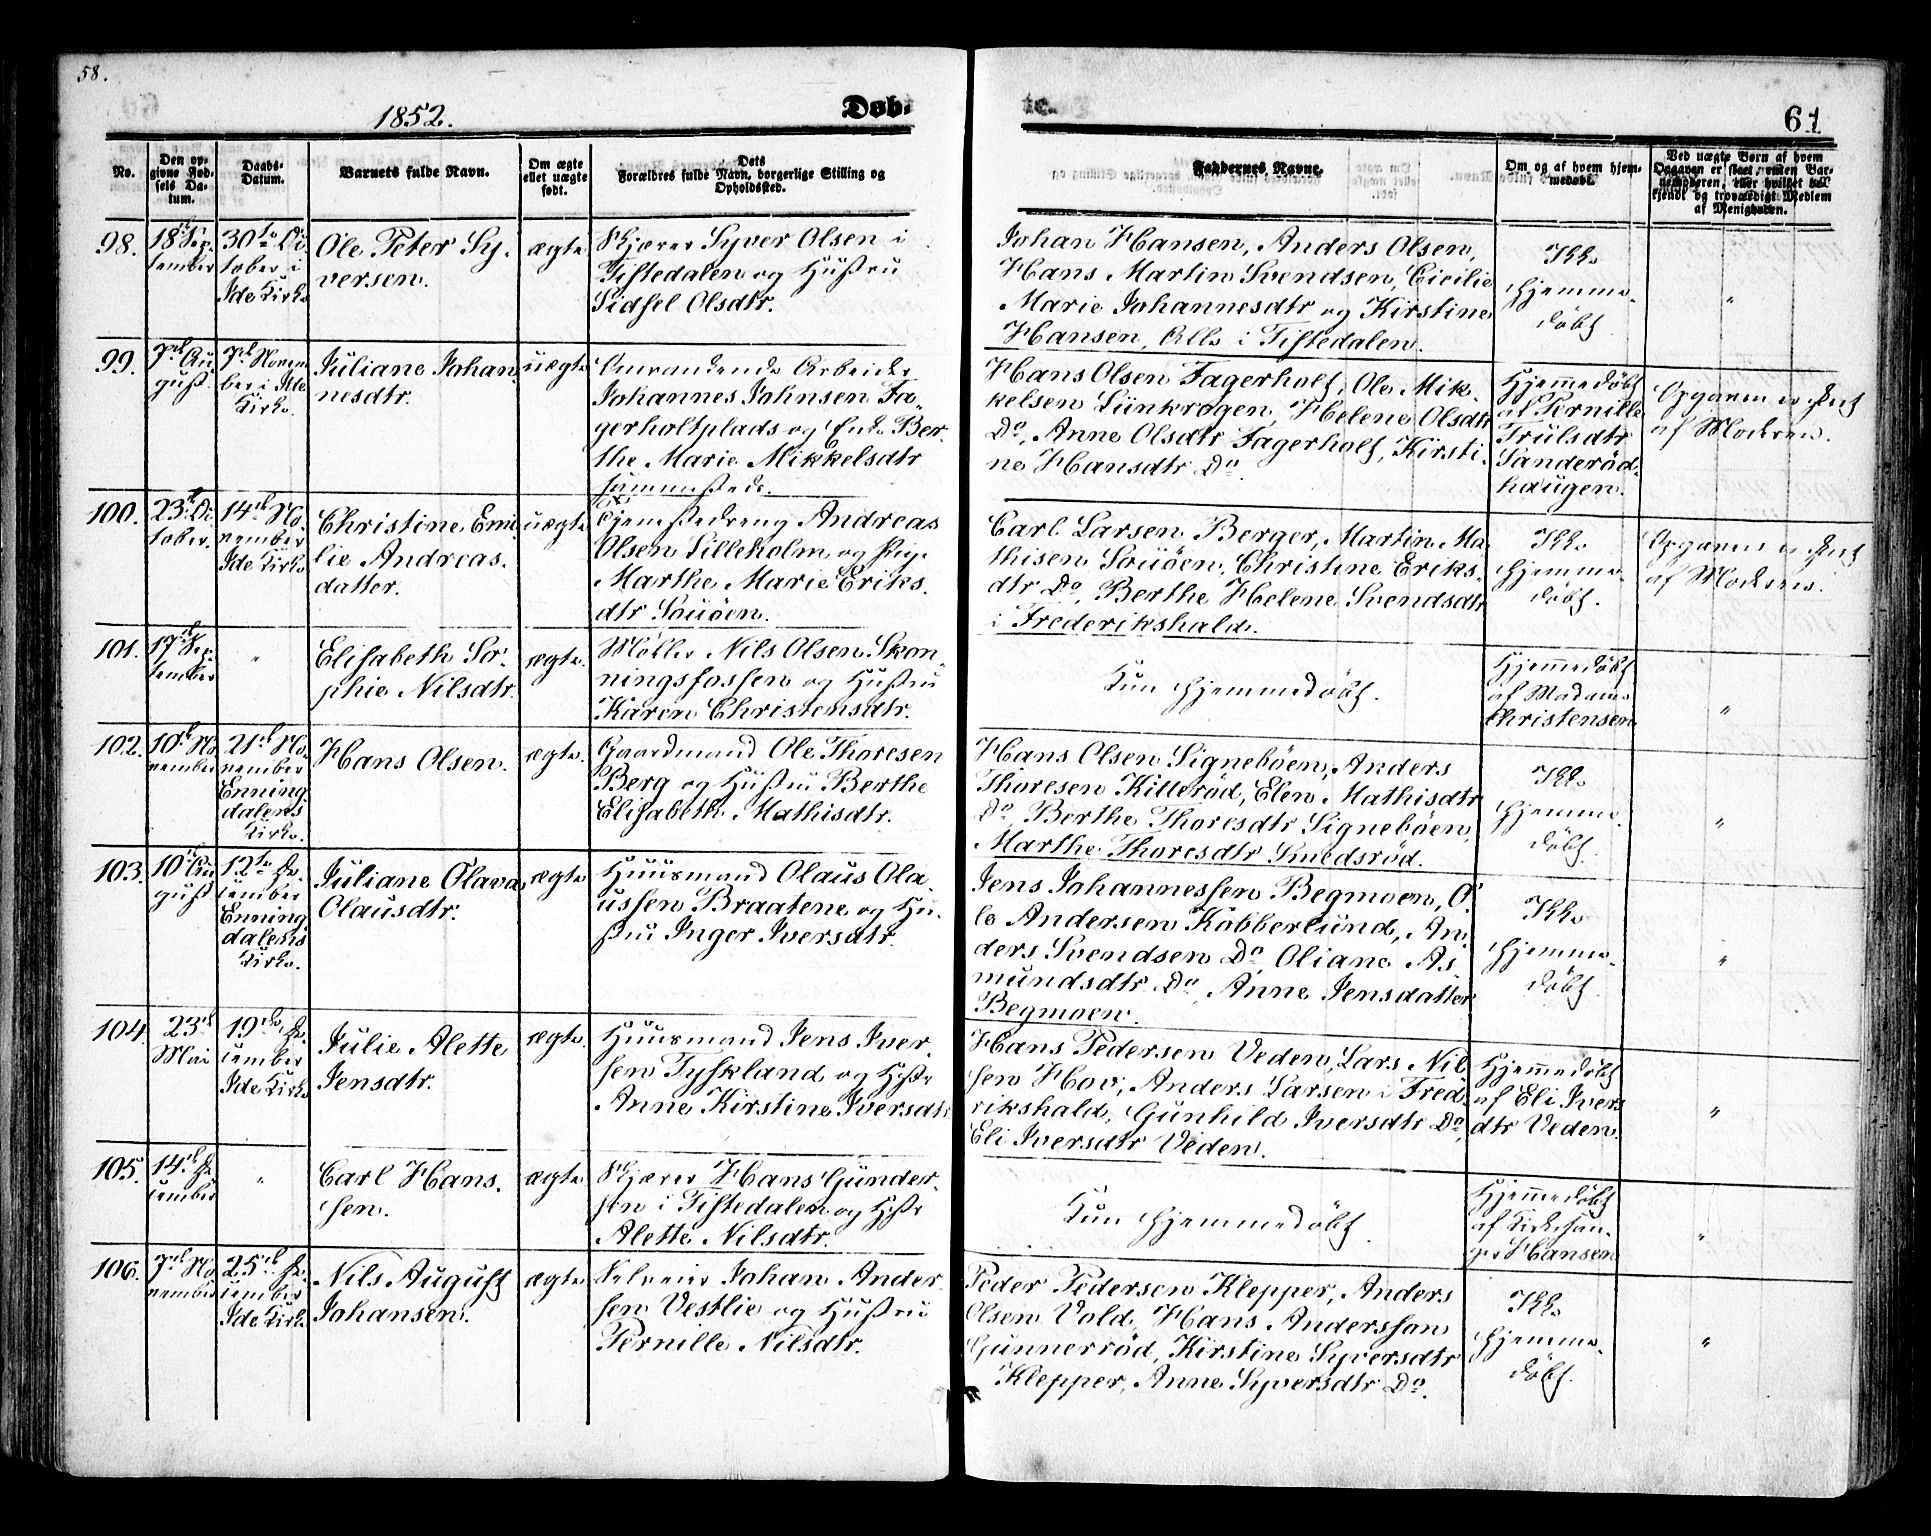 58.
1852.
Døb-
61
No.
Den op-
givne Fød-
sels Da-
tum.
Daabs-
Datum.
Barnets fulde Navn.
Om ægte
ellet uægte
født.
Dets
Forældres fulde Navn, borgerlige Stilling og
Opholdssted.
Faddernes Navne.
Om og af hvem hjem-
medøbt.
Ved uægte Børn af hvem
Opgaven er skeet, enten Bar-
nemoderen, eller hvilket be-
kjendt og troværdigt Medlem
af Menigheden.
98.
18de Sep-
tember
30te Oc-
tober i
Ide Kirke
Ole Peter Sy-
versen.
ægte
Skjærer Syver Olsen i
Tistedalen og Hustru
Sidsel Olsdtr.
Johan Hansen, Anders Olsen,
Hans Martin Svendsen, Cicilie
Marie Johannesdtr og Kirstine
Hansen, Alle i Tistedalen.
Ikke
hjemme-
døbt.
"
99.
7de Au-
gust.
7de Novem-
ber i Ide
Kirke.
Juliane Johan-
nesdtr.
uægte
Omvandrende Arbeider
Johannes Johnsen Fa-
gerholtplads og Enke Ber-
the Marie Mikkelsdtr
sammesteds.
Hans Olsen Fagerholt, Ole Mik-
kelsen Lünkrogen, Helene Olsdtr
Do, Anne Olsdtr Fagerholt, Kirsti-
ne Hansdtr Do.
Hjemmedøbt
af Pernille
Trulsdtr
Sanderöd-
haugen.
Opgaven er skeet
af Moderen.
100.
23de Oc-
tober.
14de No-
vember
Ide Kirke
Christine Emi-
lie Andreas-
datter.
uægte
Tjenestedreng Andreas
Olsen Lilleholm og Pige
Marthe Marie Eriks-
dtr Sauöen.
Carl Larsen Berger, Martin Ma-
thisen Sauöen, Christine Eriks-
dtr Do, Berthe Helene Svendsdtr
i Frederikshald.
Ikke
hjemme-
døbt.
Opgaven er skeet
af Moderen.
101.
17de Sep-
tember
"
Elisabeth So-
phie Nilsdtr.
ægte.
Møller Nils Olsen Skon-
ningsfossen og Hustru
Karen Christensdtr.
Kun hjemmedøbt.
Hjemmedøbt
af Madame
Christensen
"
102.
10de No-
vember
21de No-
vember
Enning-
dalens
Kirke.
Hans Olsen.
ægte.
Gaardmand Ole Thoresen
Berg og Hustru Berthe
Elisabeth Mathisdtr.
Hans Olsen Signeböen, Anders
Thoresen Killeröd, Elen Mathisdtr
Do, Berthe Thoresdtr Signeböen,
Marthe Thoresdtr Smedsröd.
Ikke
hjemme-
døbt.
"
103.
10de Au-
gust
12te De-
cember
Enning-
dalens
Kirke.
Juliane Olava
Olausdtr.
ægte
Huusmand Olaus Ola-
ussen Braatene og Hu-
stru Inger Iversdtr.
Jens Johannessen Begmoen, O-
le Andersen Kobberlund, An-
ders Svendsen Do, Oliane As-
mundsdtr Do, Anne Jensdatter
Begmoen.
Ikke
hjemme-
døbt.
"
104.
23de
Mai
19de De-
cember
Ide Kirke
Julie Alette
Jensdtr.
ægte.
Huusmand Jens Iver-
sen Tyskland og Hstr
Anne Kirstine Iversdtr
Hans Pedersen Veden, Lars Nil-
sen Hov, Anders Larsen i Fred-
rikshald, Gunhild Iversdtr Do,
Eli Iversdtr Veden.
Hjemmedøbt
af Eli Ivers-
dtr Veden.
"
105.
14de De-
cember
"
Carl Hans-
sen.
ægte.
Skjærer Hans Gunder-
sen i Tistedalen og Hstr
Alette Nilsdtr.
Kun hjemmedøbt.
Hjemmedøbt
af Kirkesan-
ger Hansen
"
106.
7de No-
vember
25de De-
cember
Ide Kirke
Nils August
Johansen.
ægte.
Selveier Johan Ander-
sen Vestlie og Hustru
Pernille Nilsdtr.
Peder Pedersen Klepper, Anders
Olsen Vold, Hans Anderssøn
Gunnerröd, Kirstine Syversdtr
Klepper, Anne Syversdtr Do.
Ikke
hjemme-
døbt.
"